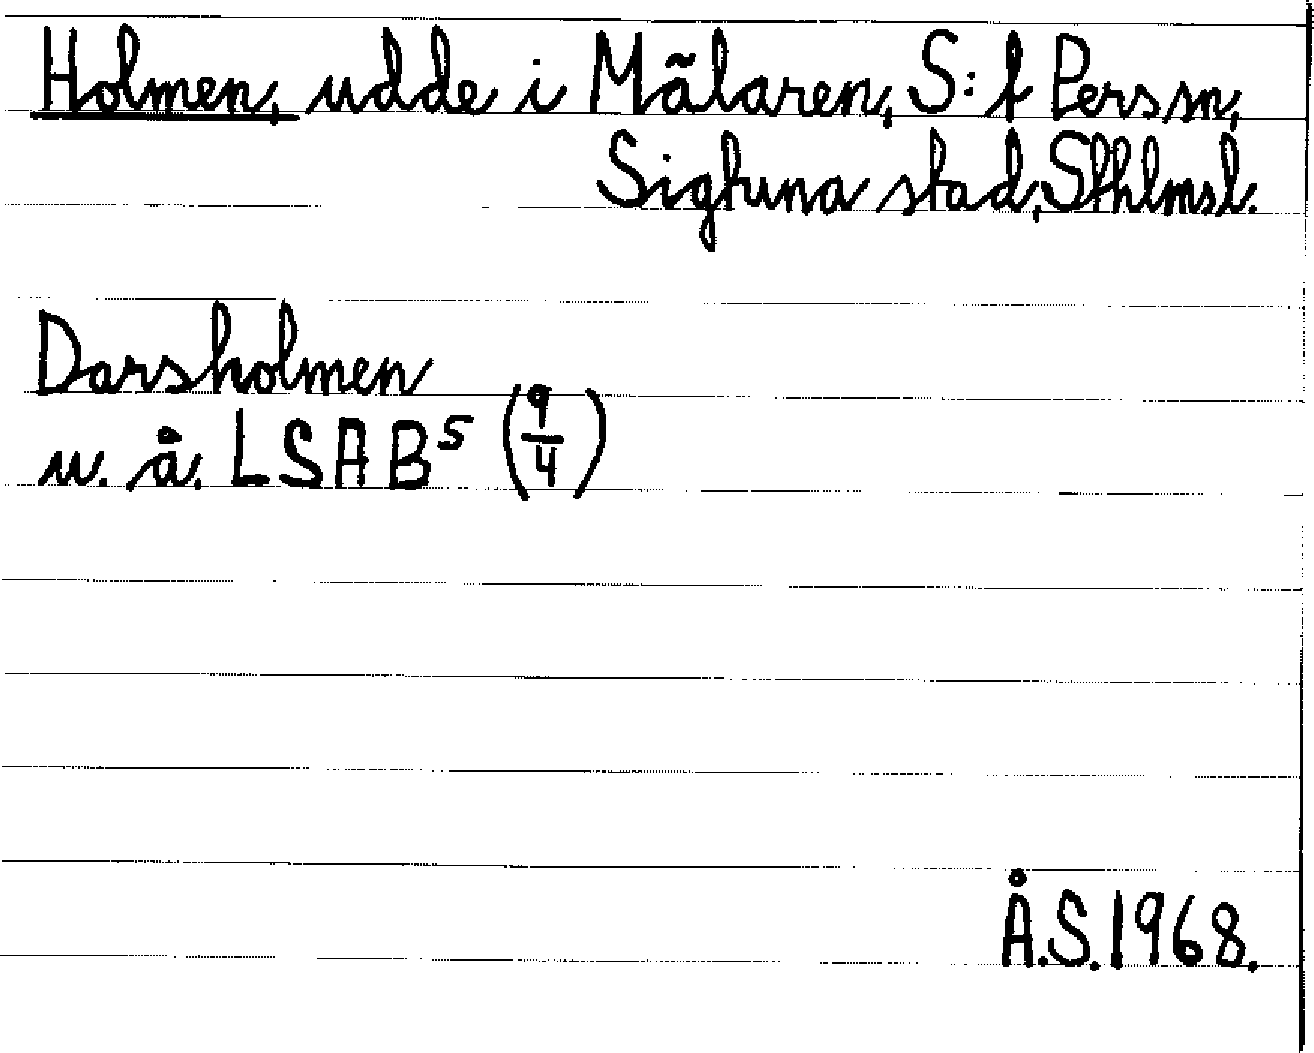 Holmen, udde i Mälaren, S:t Pers sn,
Sigtuna stad, Sthlmsl.
Darsholmen
u. å. LSA B⁵ (9/4)
Å.S. 1968.